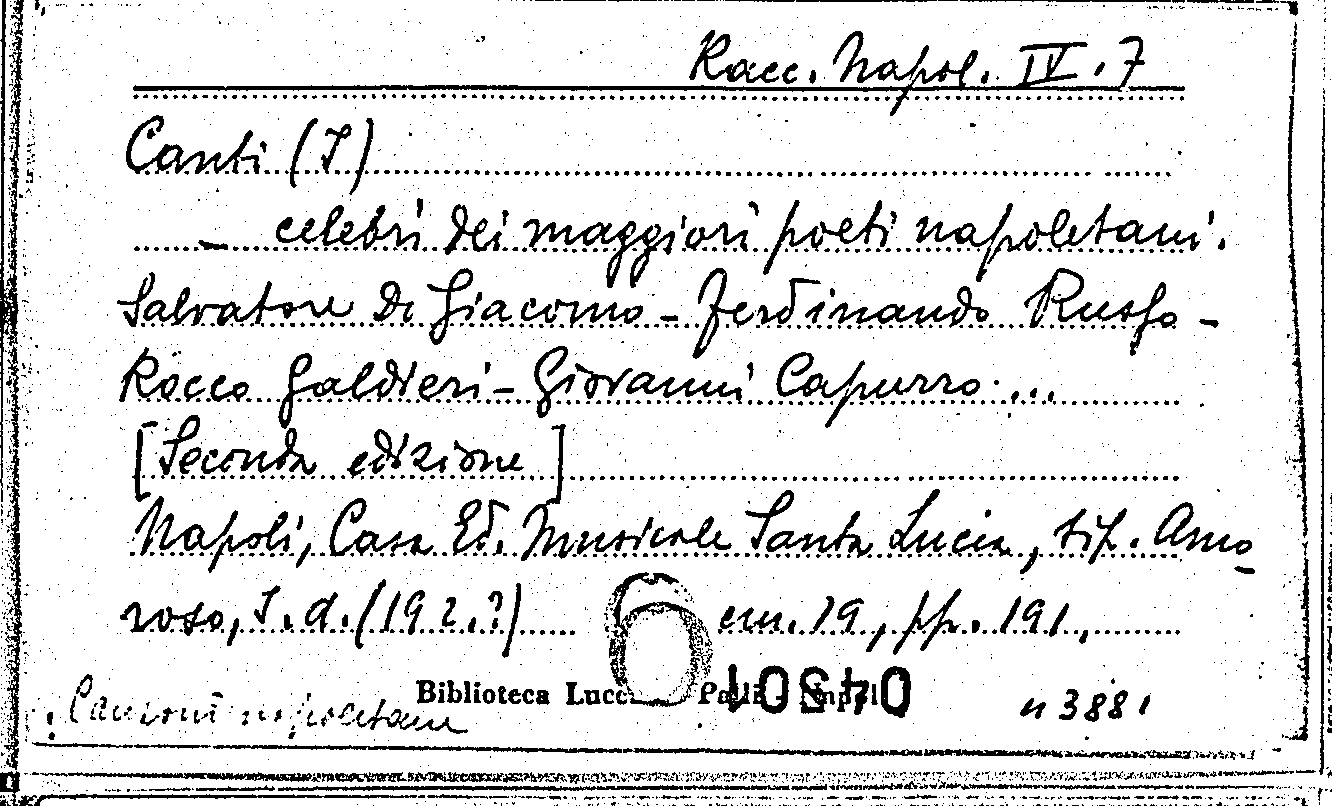 Racc. Napol. IV. 7
Canti (I)
_ celebri dei maggiori poeti napoletani.
Salvatore Di Giacomo - Ferdinando Russo -
Rocco Galdieri - Giovanni Capurro ...
[Seconda edizione]
Napoli, Casa Ed. Musicale Santa Lucia, tip. Amo-
roso, s.d. (192.?) cm. 19, pp. 191.
Biblioteca Lucc
04301
n 3881
Canzoni napoletane